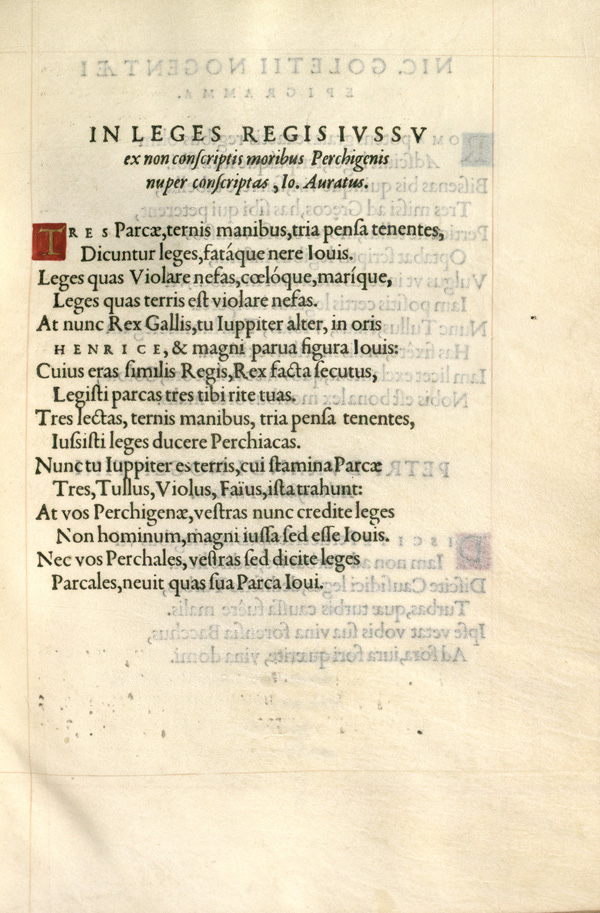 IN LEGES REGIS IVSSV
ex non conſcriptis moribus Perchigenis
nuper conſcriptas, Io. Auratus.
TRES Parcæ, ternis manibus, tria penſa tenentes,
Dicuntur leges, fatáque nere Iouis.
Leges quas Violare nefas, cœlóque, maríque,
Leges quas terris eſt violare nefas.
At nunc Rex Gallis, tu Iuppiter alter, in oris
HENRICE, & magni parua figura Iouis:
Cuius eras ſimilis Regis, Rex facta ſecutus,
Legiſti parcas tres tibi rite tuas.
Tres lectas, ternis manibus, tria penſa tenentes,
Iuſsiſti leges ducere Perchiacas.
Nunc tu Iuppiter es terris, cui ſtamina Parcæ
Tres, Tullus, Violus, Faïus, iſta trahunt:
At vos Perchigenæ, veſtras nunc credite leges
Non hominum, magni iuſſa ſed eſſe Iouis.
Nec vos Perchales, veſtras ſed dicite leges
Parcales, neuit quas ſua Parca Ioui.